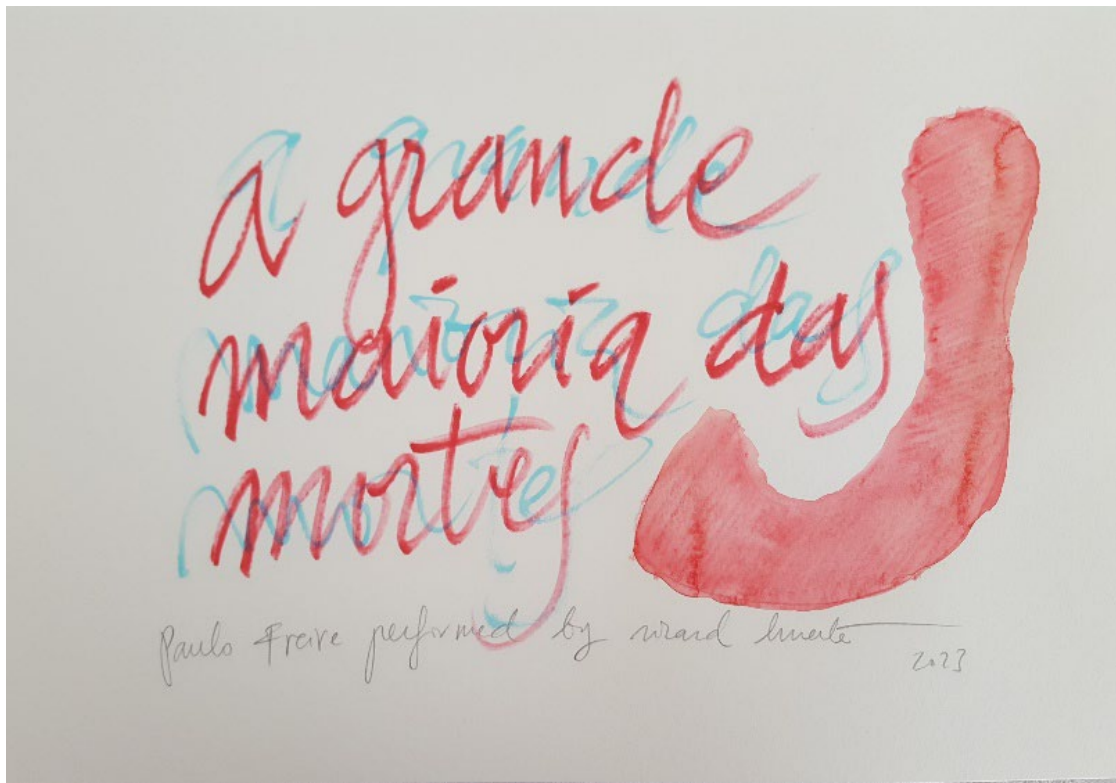 a grande
maioria das
mortes
Paulo Freire performed by
2023